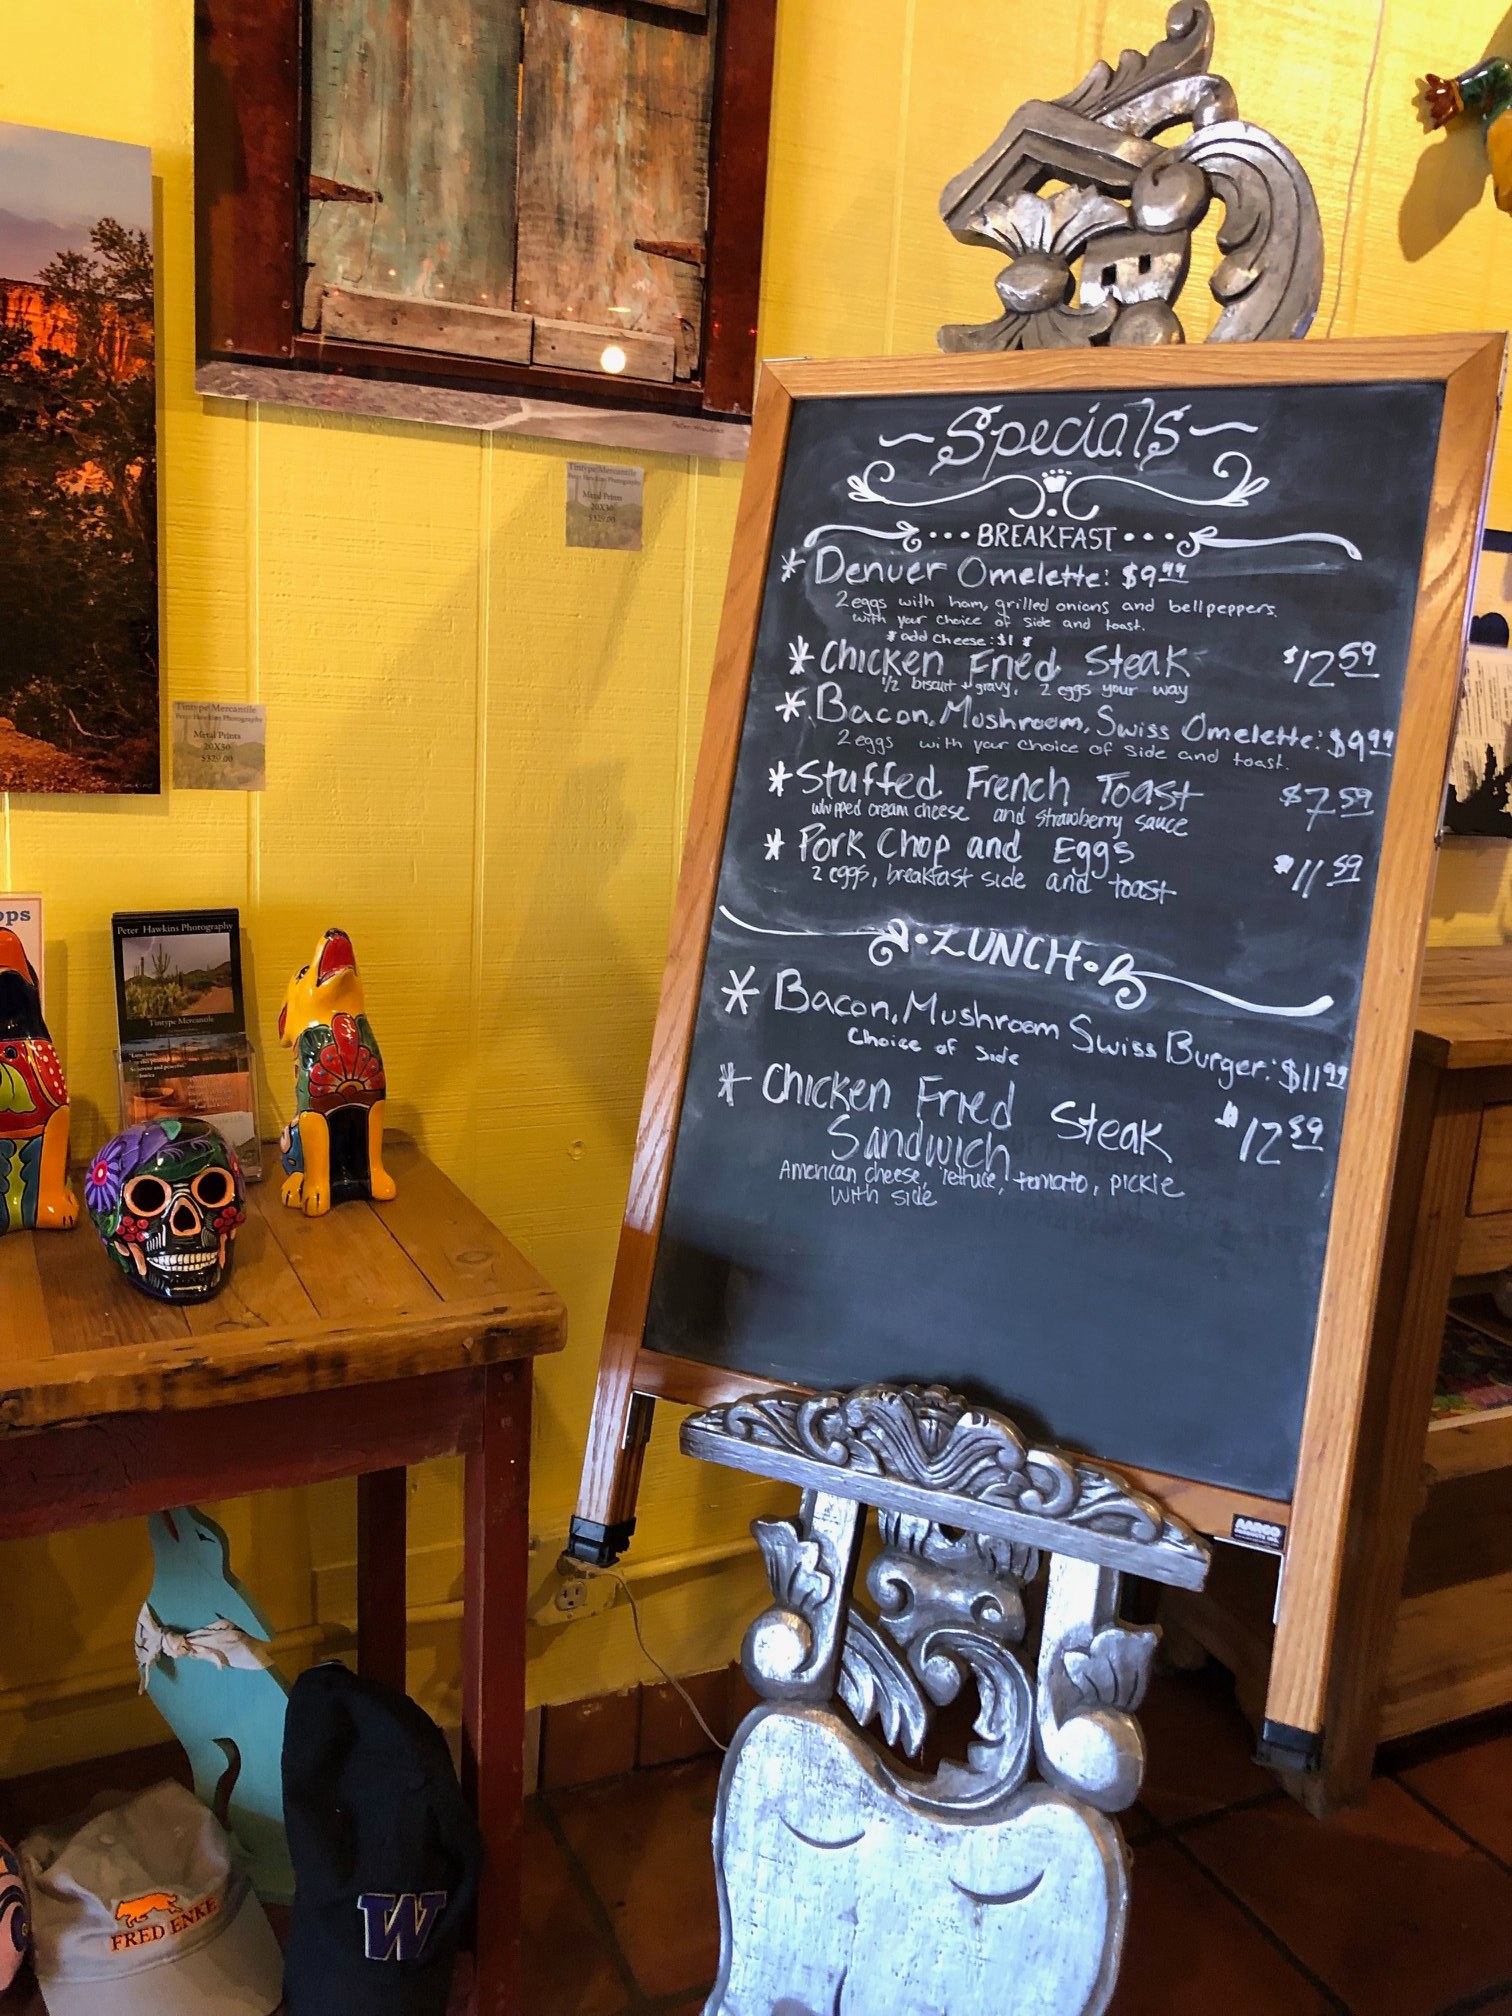 ~Specials~
...BREAKFAST...
* Denver Omelette: $9.99
2 eggs with ham, grilled onions and bellpeppers.
with your choice of side and toast.
* add cheese: $1 *
* Chicken Fried Steak $12.59
1/2 biscuit + gravy, 2 eggs your way
* Bacon, Mushroom, Swiss Omelette: $9.99
2 eggs with your choice of side and toast.
* Stuffed French Toast $7.59
whipped cream cheese and strawberry sauce
* Pork Chop and Eggs $11.59
2 eggs, breakfast side and toast
• LUNCH •
* Bacon, Mushroom Swiss Burger: $11.99
Choice of Side
* Chicken Fried Steak $12.59
Sandwich
American cheese, lettuce, tomato, pickle
with side
Tintype Mercantile
Peter Hawkins Photography
Metal Prints
20X30
$329.00
Tintype Mercantile
Peter Hawkins Photography
Metal Prints
20X30
$329.00
ops
Peter Hawkins Photography
Tintype Mercantile
AARCO
FRED ENKE
W